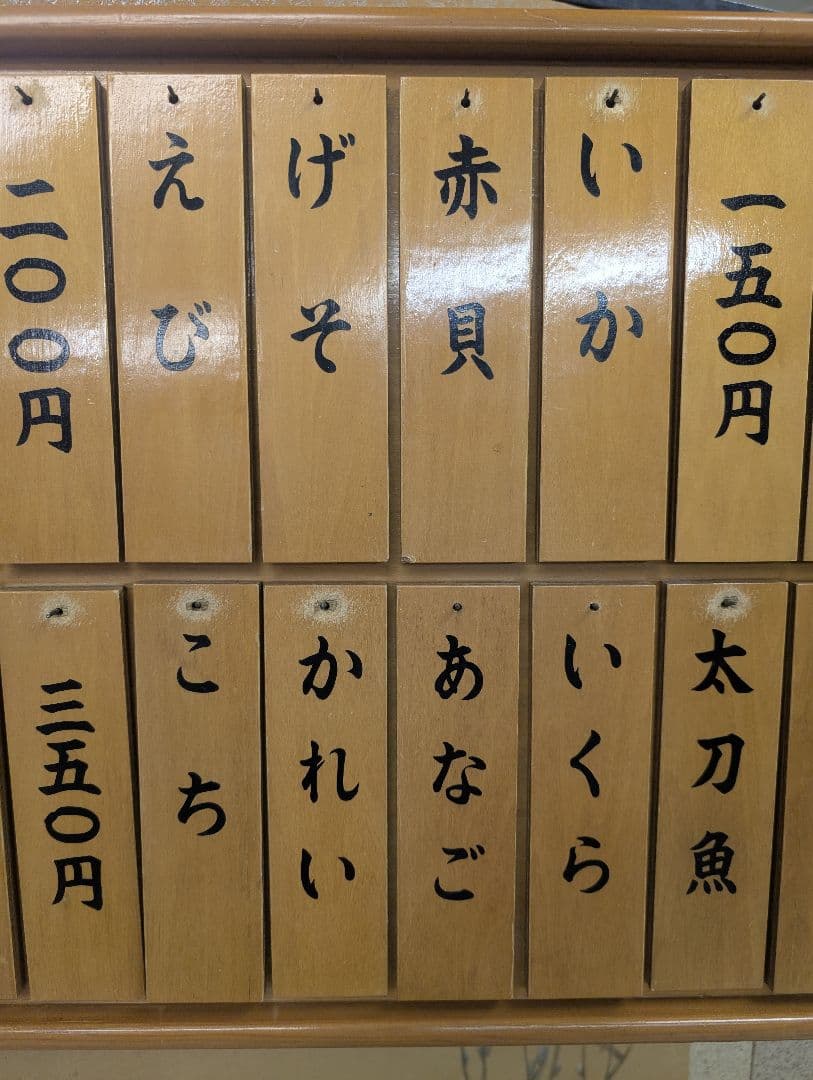 一五〇円
いか
赤貝
げそ
えび
二〇〇円
太刀魚
いくら
あなご
かれい
こち
三五〇円